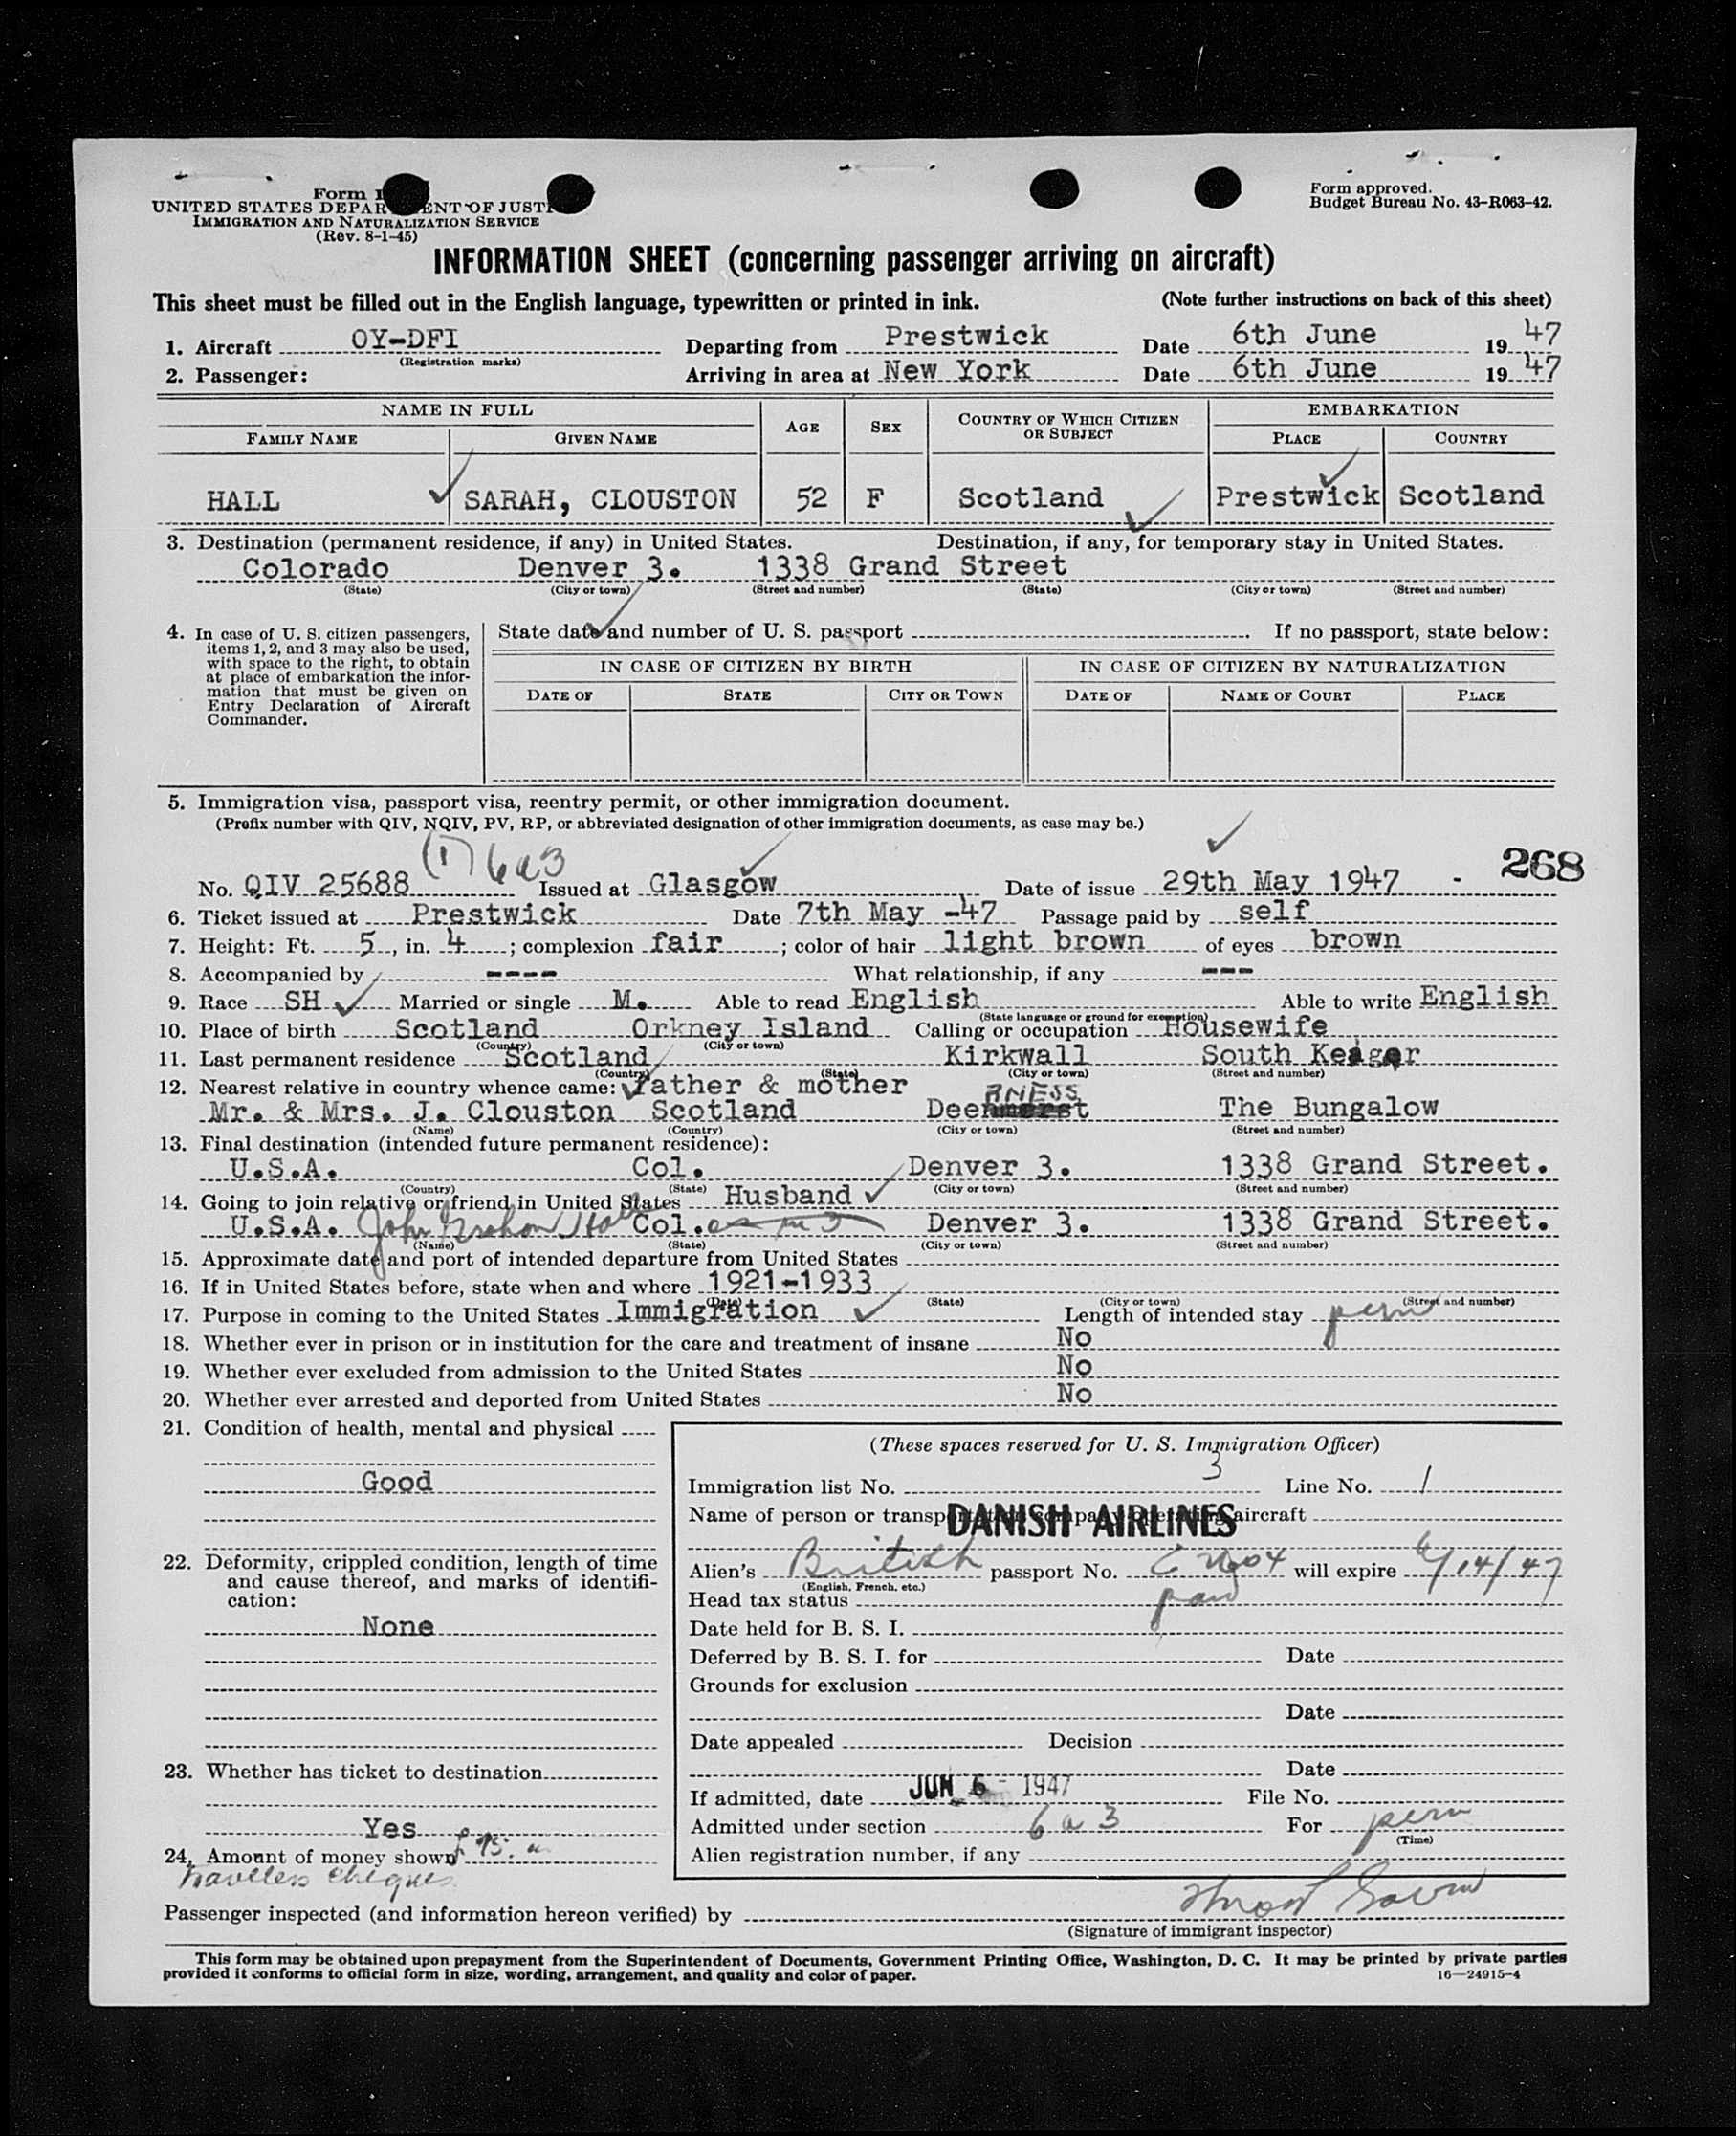 Form I
UNITED STATES DEPAR ENT OF JUSTI
IMMIGRATION AND NATURALIZATION SERVICE
(Rev. 8-1-45)
Form approved.
Budget Bureau No. 43-R063-42.
INFORMATION SHEET (concerning passenger arriving on aircraft)
This sheet must be filled out in the English language, typewritten or printed in ink. (Note further instructions on back of this sheet)
1. Aircraft OY-DFI Departing from Prestwick Date 6th June 19 47
(Registration marks)
2. Passenger: Arriving in area at New York Date 6th June 19 47
NAME IN FULL AGE SEX COUNTRY OF WHICH CITIZEN OR SUBJECT EMBARKATION
FAMILY NAME GIVEN NAME PLACE COUNTRY
HALL SARAH, CLOUSTON 52 F Scotland Prestwick Scotland
3. Destination (permanent residence, if any) in United States. Destination, if any, for temporary stay in United States.
Colorado Denver 3. 1338 Grand Street
(State) (City or town) (Street and number) (State) (City or town) (Street and number)
4. In case of U. S. citizen passengers,
items 1, 2, and 3 may also be used,
with space to the right, to obtain
at place of embarkation the infor-
mation that must be given on
Entry Declaration of Aircraft
Commander.
State date and number of U. S. passport If no passport, state below:
IN CASE OF CITIZEN BY BIRTH IN CASE OF CITIZEN BY NATURALIZATION
DATE OF STATE CITY OR TOWN DATE OF NAME OF COURT PLACE
5. Immigration visa, passport visa, reentry permit, or other immigration document.
(Prefix number with QIV, NQIV, PV, RP, or abbreviated designation of other immigration documents, as case may be.)
(1) 6a3 268
No. QIV 25688 Issued at Glasgow Date of issue 29th May 1947 -
6. Ticket issued at Prestwick Date 7th May -47 Passage paid by self
7. Height: Ft. 5, in. 4; complexion fair; color of hair light brown of eyes brown
8. Accompanied by ---- What relationship, if any ---
9. Race SH Married or single M. Able to read English Able to write English
(State language or ground for exemption)
10. Place of birth Scotland Orkney Island Calling or occupation Housewife
(Country) (City or town)
11. Last permanent residence Scotland Kirkwall South Keager
(Country) (State) (City or town) (Street and number)
12. Nearest relative in country whence came: father & mother
RNESS
Mr. & Mrs. J. Clouston Scotland Dee The Bungalow
(Name) (Country) (City or town) (Street and number)
13. Final destination (intended future permanent residence):
U.S.A. Col. Denver 3. 1338 Grand Street.
(Country) (State) (City or town) (Street and number)
14. Going to join relative or friend in United States Husband
U.S.A. John Graham Hall Col. as in 3 Denver 3. 1338 Grand Street.
(Name) (State) (City or town) (Street and number)
15. Approximate date and port of intended departure from United States
16. If in United States before, state when and where 1921-1933
(Date) (State) (City or town) (Street and number)
17. Purpose in coming to the United States Immigration Length of intended stay perm
18. Whether ever in prison or in institution for the care and treatment of insane No
19. Whether ever excluded from admission to the United States No
20. Whether ever arrested and deported from United States No
21. Condition of health, mental and physical
Good
22. Deformity, crippled condition, length of time
and cause thereof, and marks of identifi-
cation:
None
23. Whether has ticket to destination
Yes
24. Amount of money shown £ 95.
Travellers cheques
(These spaces reserved for U. S. Immigration Officer)
Immigration list No. 3 Line No. 1
Name of person or transportation company operating aircraft
DANISH AIRLINES
Alien's British passport No. will expire 6/14/47
(English, French, etc.)
Head tax status paid
Date held for B. S. I.
Deferred by B. S. I. for Date
Grounds for exclusion
Date
Date appealed Decision
Date
If admitted, date JUN 6 - 1947 File No.
Admitted under section 6 a 3 For perm
(Time)
Alien registration number, if any
Passenger inspected (and information hereon verified) by
(Signature of immigrant inspector)
This form may be obtained upon prepayment from the Superintendent of Documents, Government Printing Office, Washington, D. C. It may be printed by private parties
provided it conforms to official form in size, wording, arrangement, and quality and color of paper. 16—24915-4